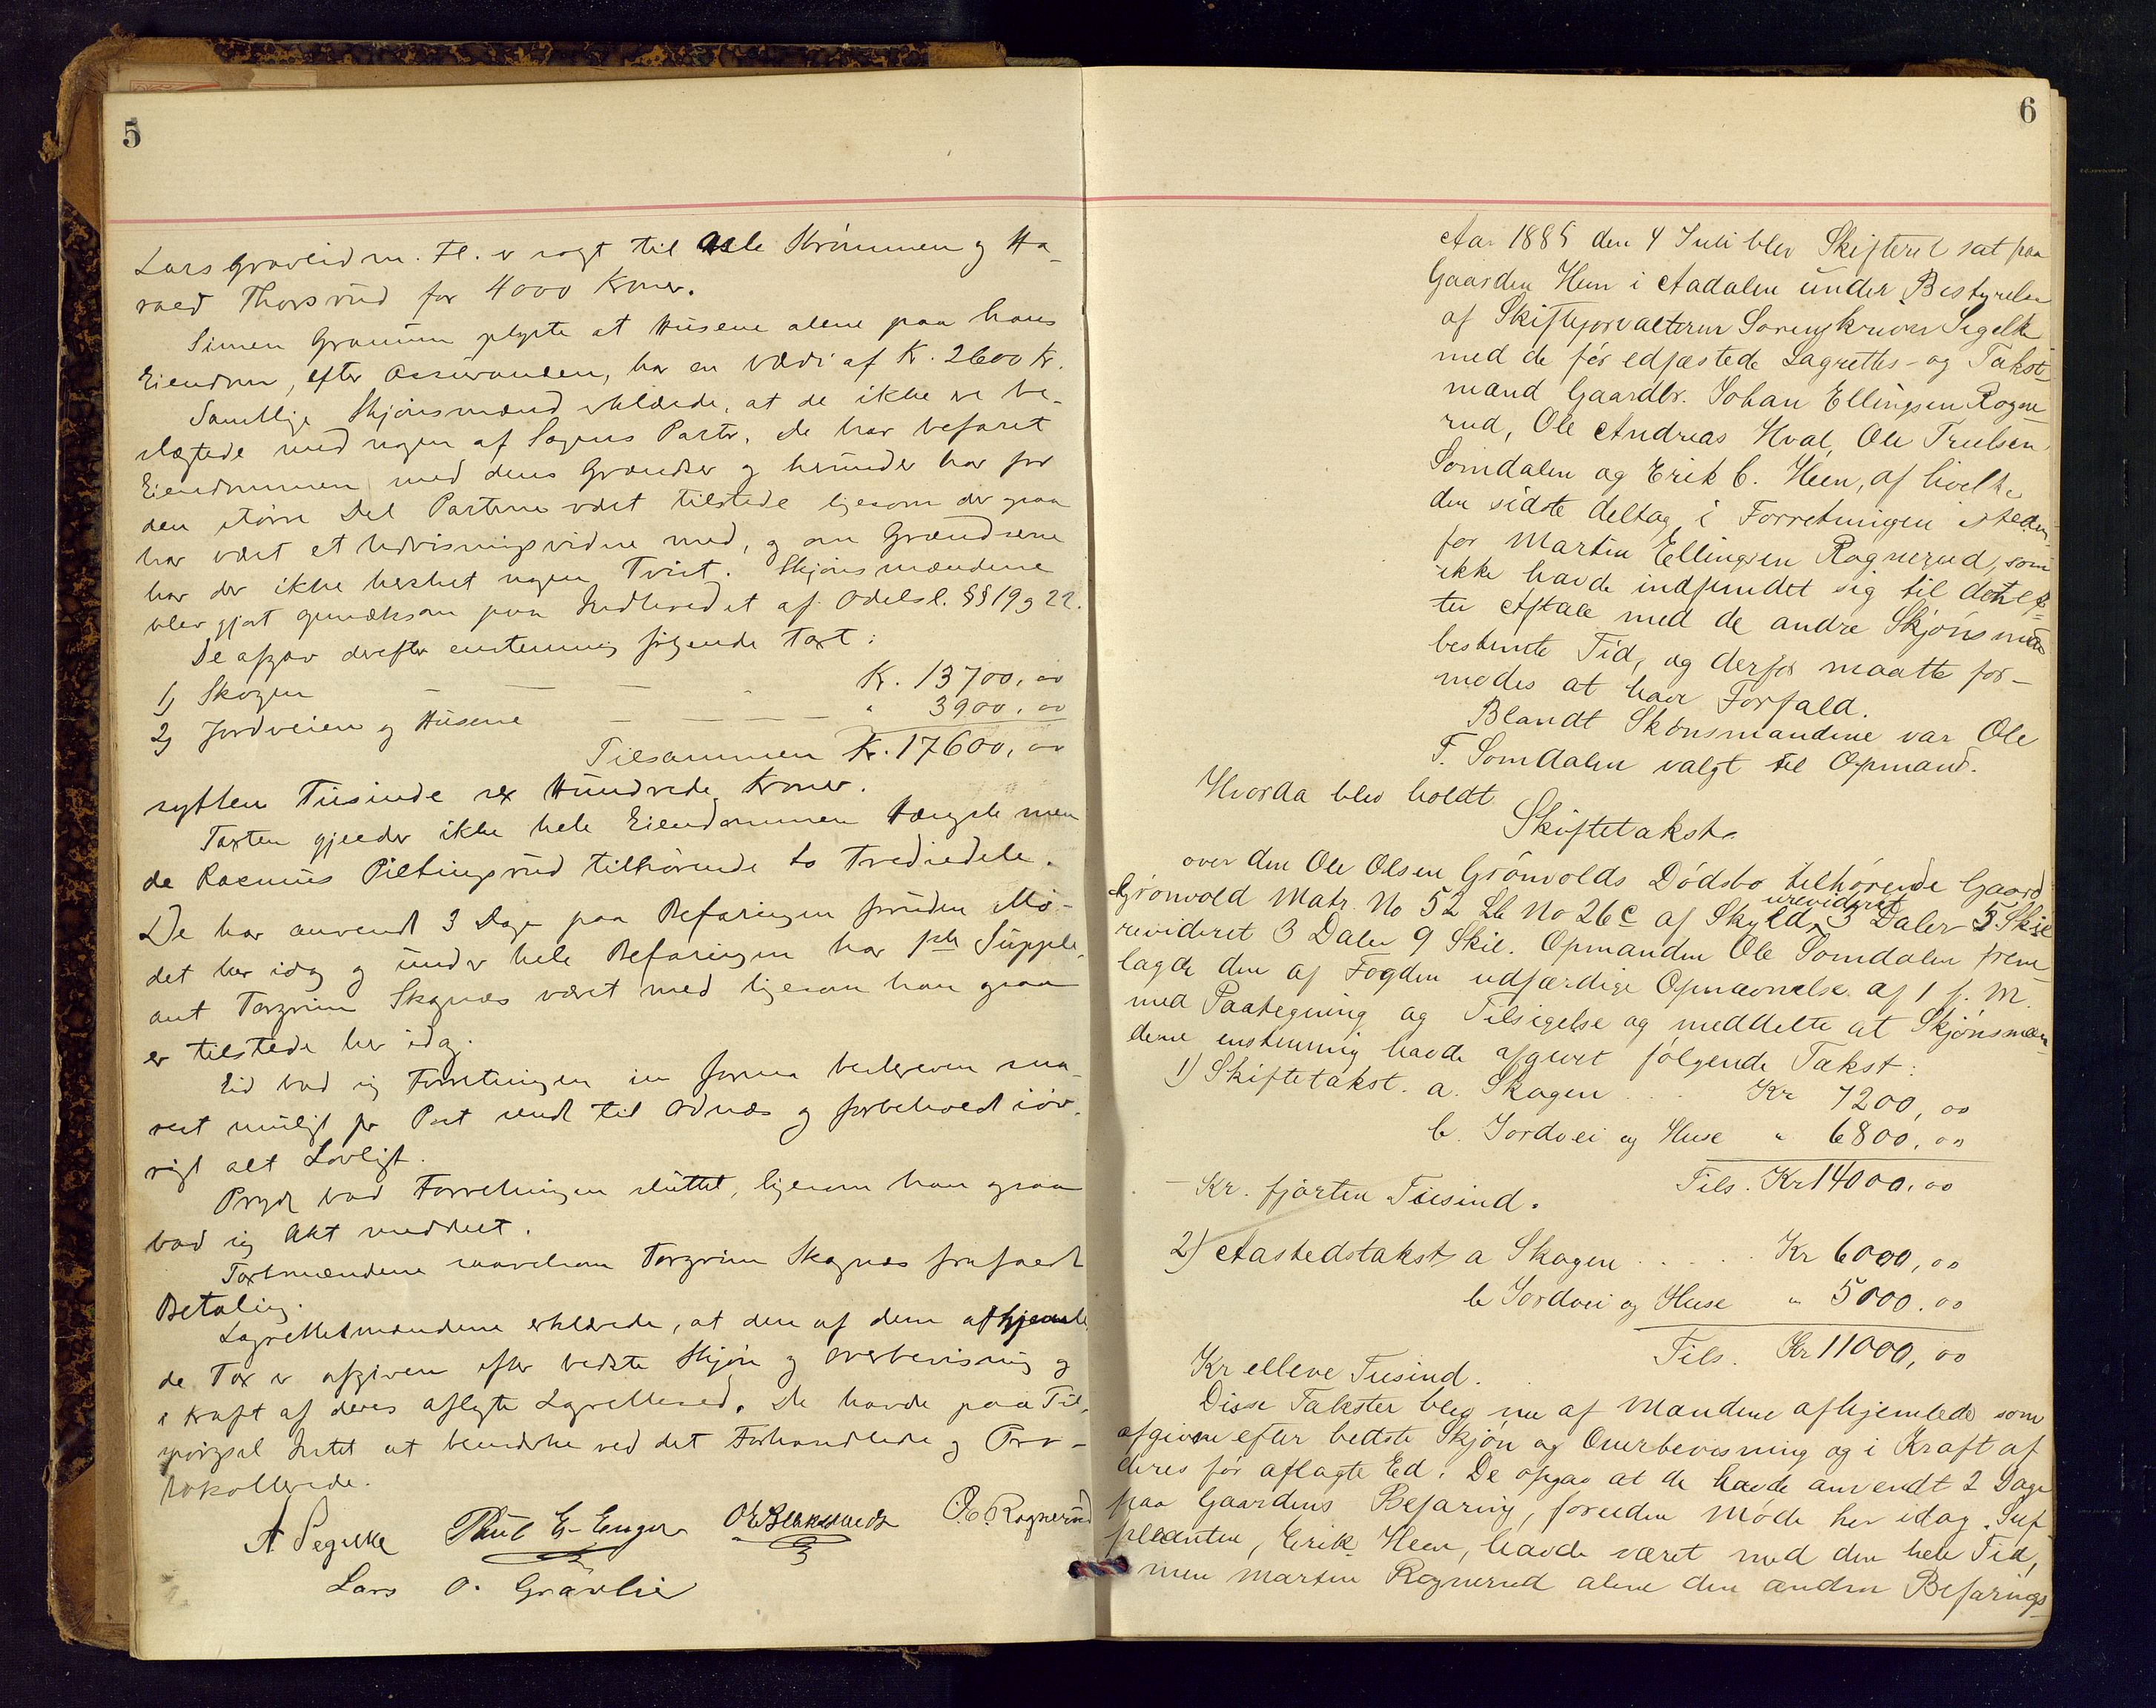 5
Lars Gravlid m. Fl. er solgt til Asle Strømmen og Ha-
rald Thorsrud for 4000 Kroner.
Simen Granum oplyste at Husene alene paa hans
Eiendom, efter Assurancen, har en værdi af Kr. 2600 Kr.
Samtlige Skjønsmænd erklærede, at de ikke er be-
slægtede med nogen af Sagens Parter. De har befaret
Eiendommen med dens Grændser og herunder har for
den større Del Parterne været tilstede ligesom der ogsaa
har været et Udvisningsvidne med, og om Grændserne
har der ikke hersket nogen Tvist. Skjønsmændene
blev gjort opmærksom paa Indholdet af Odelsl. §§ 19 og 22.
De afgav derefter enstemmig følgende Taxt:
1) Skogen — — — " Kr. 13700,00
2) Jordveien og Husene — — — " 3900,00
Tilsammen Kr. 17600,00
sytten Tusinde sex Hundrede Kroner.
Taxten gjælder ikke hele Eiendommen men
de Rasmus Piltingsrud tilhørende to Trediedele.
De har anvendt 3 Dage paa Befaringen foruden Mø-
det her idag og under hele Befaringen har 1ste Supple-
ant Torgrim Skagnæs været med ligesom han ogsaa
er tilstede her idag.
Eid bad sig Forretningen in forma beskreven sna-
rest muligt pr Post sendt til Odnæs og forbeholdt iøv-
rigt alt Lovligt.
bad Forretningen sluttet, ligesom han ogsaa
bad sig Akt meddelt.
Taxtmændene saavelsom Torgrim Skagnæs frafaldt
Betaling.
Lagrettesmændene erklærede, at den af dem afhjemle-
de Tax er afgiven efter bedste Skjøn og Overbevisning og
i Kraft af deres aflagte Lagrettesed. De havde paa Til-
spørgsel Intet at bemærke ved det Forhandlede og Pro-
tokollerede.
A Segelke Paul E. Enger O. E. Rognerud
Lars O. Gravlie
6
Aar 1885 den 4 Juli blev Skifteret sat paa
Gaarden Heen i Aadalen under Bestyrelse
af Skifteforvalteren Sorenskriver Segelke
med de før edfæstede Lagrettes- og Takst-
mænd Gaardbr. Johan Ellingsen Rogne-
rud, Ole Andreas Hval, Ole Trulsen
Somdalen og Erik C. Heen, af hvelke
den sidste deltog i Forretningen isteden-
for Martin Ellingsen Rognerud, som
ikke havde indfundet sig til den ef-
ter Aftale med de andre Skjønsmæn
bestemte Tid, og derfor maatte for-
modes at have Forfald.
Blandt Skønsmændene var Ole
T. Somdalen valgt til Opmand.
Hvorda blev holdt
Skiftetakst
over den Ole Olsen Grönvolds Dödsbo tilhørende Gaard
Grönvold Matr. No 52 Lb No 26c af Skyld urevideret 3 Daler 5 Skil
revideret 3 Daler 9 Skil. Opmanden Ole Somdalen frem-
lagde den af Fogden udfærdige Opnævnelse af 1 f. M.
med Paategning og Tilsigelse og meddelte at Skjönsmæn-
dene enstemmig havde afgivet følgende Takst:
1) Skiftetakst. a. Skogen . . . Kr 7200,00
b. Jordvei og Huse " 6800,00
Tils. Kr 14000,00
- Kr. fjorten Tusind.
2) Aastedstakst a Skogen . . . . . Kr 6000,00
b Jordvei og Huse " 5000.00
Tils. Kr 11000,00
Kr elleve Tusind.
Disse Takster blev nu af Mændene afhjemlede som
afgivne efter bedste Skjøn og Overbevisning og i Kraft af
deres før aflagte Ed. De opgav at de havde anvendt 2 Dage
paa Gaardens Befaring, foruden Møde her idag. Sup-
pleanten, Erik Heen, havde været med den hele Tid,
men Martin Rognerud alene den anden Befarings-